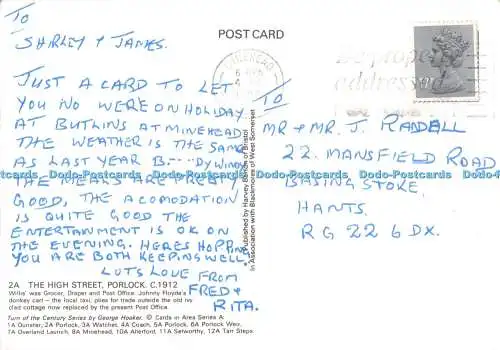 TO
SHIRLEY & JAMES.
JUST A CARD TO LET
YOU NO WERE ON HOLIDAY
AT BUTLINS AT MINEHEAD
THE WEATHER IS THE SAME
AS LAST YEAR B----DY WINDY
THE MEALS ARE PRETTY
GOOD, THE ACOMODATION
IS QUITE GOOD THE
ENTERTANMENT IS OK ON
THE EVENING. HERES HOPPING
YOU ARE BOTH KEEPING WELL.
LOTS LOVE FROM
FRED &
RITA.
2A THE HIGH STREET, PORLOCK. C.1912
Willis' was Grocer, Draper and Post Office. Johnny Floyde's
donkey cart - the local taxi, plies for trade outside the old ivy
clad cottage now replaced by the present Post Office.
Turn of the Century Series by George Hooker. © Cards in Area Series A:
1A Dunster, 2A Porlock, 3A Watchet, 4A Coach, 5A Porlock, 6A Porlock Weir,
7A Overland Launch, 8A Minehead, 10A Allerford, 11A Selworthy, 12A Tarr Steps.
POST CARD
Published by Harvey Barton of Bristol
in Association with Blackmores of West Somerset
MINEHEAD
Be properly
addressed
TO
MR & MR. J. RANDELL
22. MANSFIELD ROAD
BASINGSTOKE.
HANTS.
RG22 6DX.
Dodo-Postcards Dodo-Postcards Dodo-Postcards Dodo-Postcards Dodo-Postcards